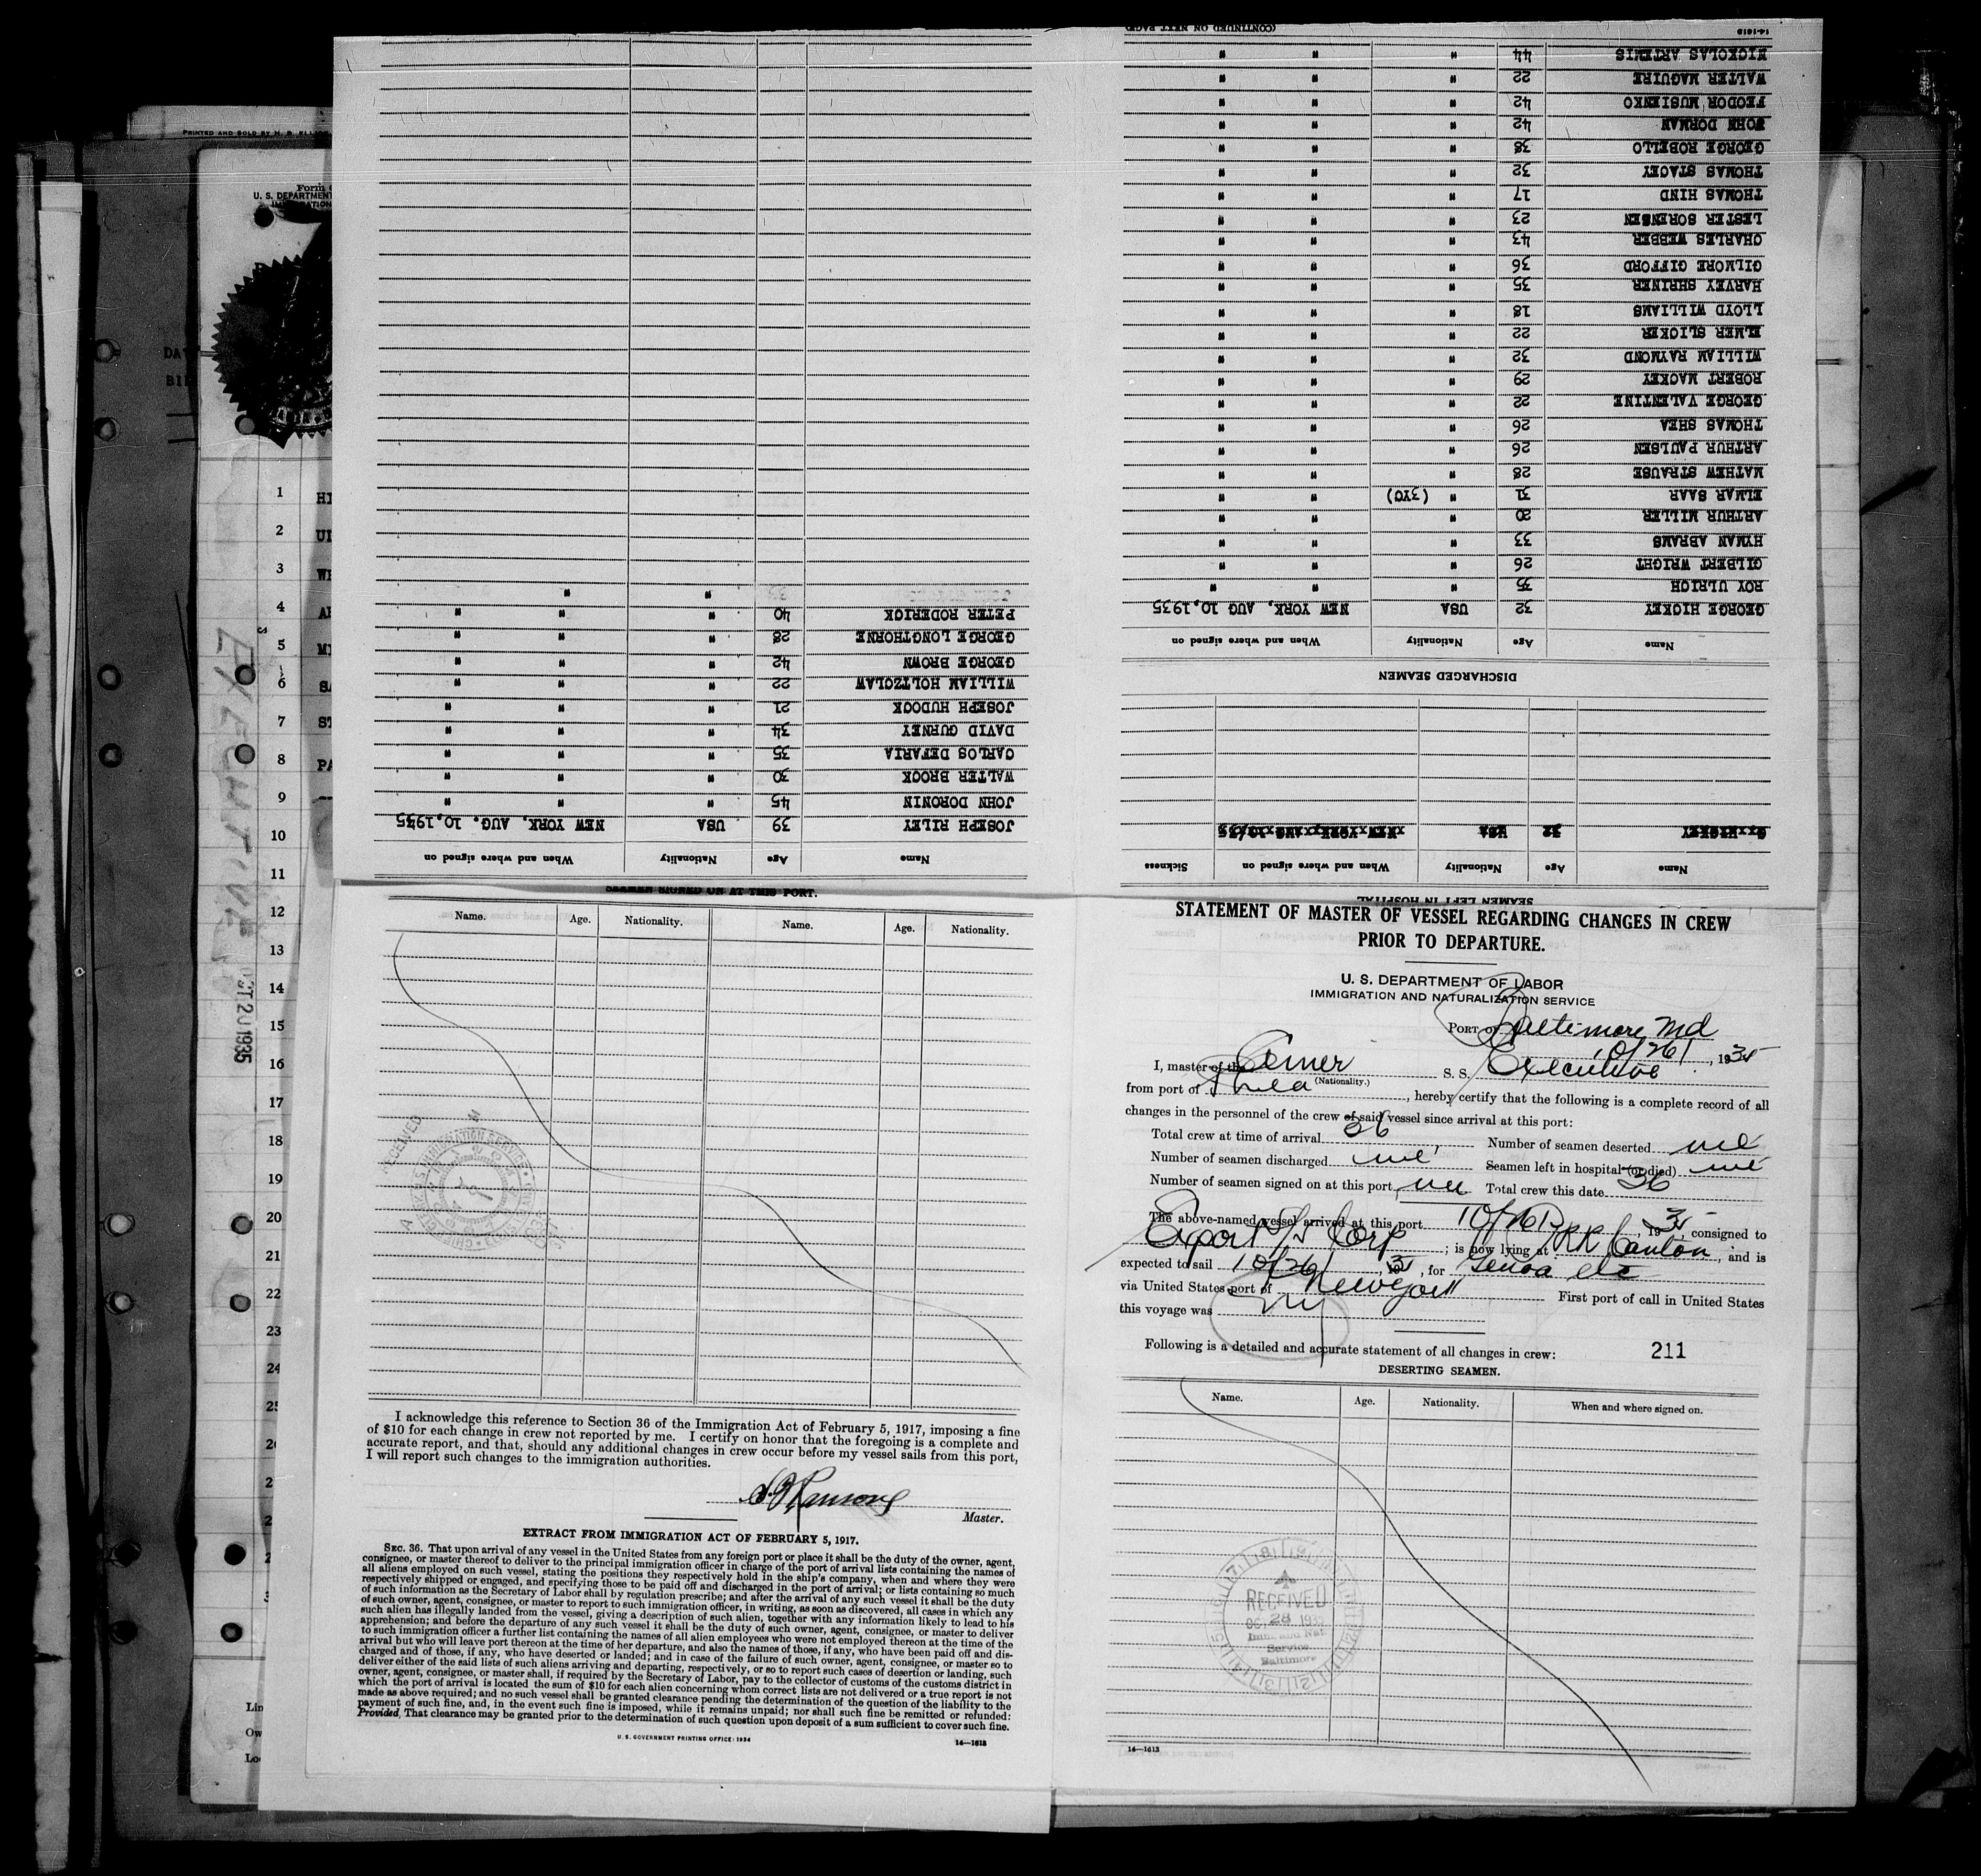 STATEMENT OF MASTER OF VESSEL REGARDING CHANGES IN CREW
PRIOR TO DEPARTURE.
U. S. DEPARTMENT OF LABOR
IMMIGRATION AND NATURALIZATION SERVICE
PORT OF Baltimore Md
10/26/, 1935
I, master of the Amer S. S. Executive
(Nationality.)
from port of , hereby certify that the following is a complete record of all
changes in the personnel of the crew of said vessel since arrival at this port:
Total crew at time of arrival 36 Number of seamen deserted nil
Number of seamen discharged nil Seamen left in hospital (or died) nil
Number of seamen signed on at this port nil Total crew this date 36
The above-named vessel arrived at this port 1935, consigned to
Export S/S Corp; is now lying at PRR Canton, and is
expected to sail 10/26/ 1935, for Genoa etc
via United States port of New York First port of call in United States
this voyage was NY
Following is a detailed and accurate statement of all changes in crew: 211
DESERTING SEAMEN.
Name. Age. Nationality. When and where signed on.
RECEIVED
OCT 28 1935
Imm. and Nat.
Service
Baltimore
14—1613
SEAMEN LEFT IN HOSPITAL
Name Age Nationality When and where signed on Sickness
DISCHARGED SEAMEN
Name Age Nationality When and where signed on
GEORGE HICKEY 32 USA NEW YORK, AUG 10,1935
ROY ULRICH 35 " " "
GILBERT WRIGHT 26 " " "
HYMAN ABRAMS 33 " " "
ARTHUR MILLER 20 " " "
ELMAR SAAR 31 " (3YC) " "
MATHEW STRAUSE 28 " " "
ARTHUR PAULSEN 26 " " "
THOMAS SHEA 26 " " "
GEORGE VALENTINE 22 " " "
ROBERT MACKEY 29 " " "
WILLIAM RAYMOND 32 " " "
ELMER SLICKER 22 " " "
LLOYD WILLIAMS 18 " " "
HARVEY SHRINER 35 " " "
GILMORE GIFFORD 36 " " "
CHARLES WEBBER 43 " " "
LESTER SORENSEN 23 " " "
THOMAS HIND 17 " " "
THOMAS STACEY 32 " " "
GEORGE ROBELLO 38 " " "
JOHN DORMAN 42 " " "
FEODOR MUSIENKO 42 " " "
WALTER MAGUIRE 22 " " "
NICKOLAS ARTEMIS 44 " " "
14-1613 (CONTINUED ON NEXT PAGE)
Name Age Nationality When and where signed on
JOSEPH RILEY 39 USA NEW YORK, AUG. 10,1935
JOHN DORONIN 45 " " "
WALTER BROCK 30 " " "
CARLOS DEFARIA 35 " " "
DAVID GURNEY 34 " " "
JOSEPH HUDOCK 21 " " "
WILLIAM HOLTZCLAW 22 " " "
GEORGE BROWN 42 " " "
GEORGE LONGTHORNE 28 " " "
PETER RODERICK 40 " " "
SEAMEN SIGNED ON AT THIS PORT.
Name. Age. Nationality. Name. Age. Nationality.
RECEIVED
I acknowledge this reference to Section 36 of the Immigration Act of February 5, 1917, imposing a fine
of $10 for each change in crew not reported by me. I certify on honor that the foregoing is a complete and
accurate report, and that, should any additional changes in crew occur before my vessel sails from this port,
I will report such changes to the immigration authorities.
Master.
EXTRACT FROM IMMIGRATION ACT OF FEBRUARY 5, 1917.
SEC. 36. That upon arrival of any vessel in the United States from any foreign port or place it shall be the duty of the owner, agent,
consignee, or master thereof to deliver to the principal immigration officer in charge of the port of arrival lists containing the names of
all aliens employed on such vessel, stating the positions they respectively hold in the ship's company, when and where they were
respectively shipped or engaged, and specifying those to be paid off and discharged in the port of arrival; or lists containing so much
of such information as the Secretary of Labor shall by regulation prescribe; and after the arrival of any such vessel it shall be the duty
of such owner, agent, consignee, or master to report to such immigration officer, in writing, as soon as discovered, all cases in which any
such alien has illegally landed from the vessel, giving a description of such alien, together with any information likely to lead to his
apprehension; and before the departure of any such vessel it shall be the duty of such owner, agent, consignee, or master to deliver
to such immigration officer a further list containing the names of all alien employees who were not employed thereon at the time of the
arrival but who will leave port thereon at the time of her departure, and also the names of those, if any, who have been paid off and dis-
charged and of those, if any, who have deserted or landed; and in case of the failure of such owner, agent, consignee, or master so to
deliver either of the said lists of such aliens arriving and departing, respectively, or so to report such cases of desertion or landing, such
owner, agent, consignee, or master shall, if required by the Secretary of Labor, pay to the collector of customs of the customs district in
which the port of arrival is located the sum of $10 for each alien concerning whom correct lists are not delivered or a true report is not
made as above required; and no such vessel shall be granted clearance pending the determination of the question of the liability to the
payment of such fine, and, in the event such fine is imposed, while it remains unpaid; nor shall such fine be remitted or refunded:
Provided, That clearance may be granted prior to the determination of such question upon deposit of a sum sufficient to cover such fine.
U. S. GOVERNMENT PRINTING OFFICE: 1934 14—1613
PRINTED AND SOLD BY
U. S. DEPARTMENT
EXECUTIVE
1
2
3
4
5
6
7
8
9
10
11
12
13
14
15
16
17
18
19
20
21
22
23
24